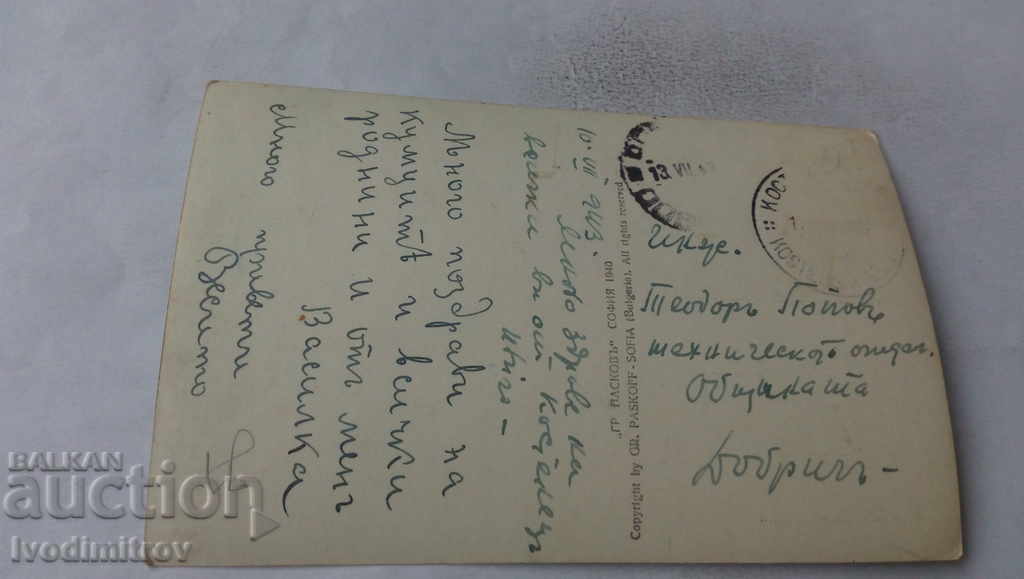 10.VII 943
Много здраве на
всички ви от Костенецъ
Много поздрави на
кумцитѣ и всички
роднини и отъ менъ
Василка
Много привети
Веслито
"ГР. ПАСКОВЪ" СОФИЯ 1940
Copyright by GR. PASKOFF-SOFIA (Bulgaria). All rights reserved
13 VII
КОС
Инж.
Теодоръ Поповъ
техническото отдел.
Общината
Добричъ-
BALKAN
auction
Ivodimitrov